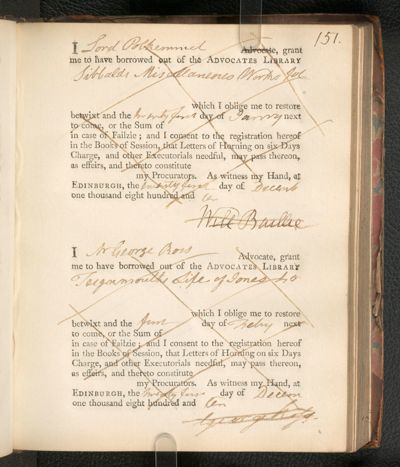 151.
I Lord Polkemmet Advocate, grant
me to have borrowed out of the ADVOCATES LIBRARY
Sibbalds Miscellaneous Works fol
which I oblige me to restore
betwixt and the twenty first day of Janry next
to come, or the Sum of
in case of Failzie; and I consent to the registration hereof
in the Books of Session, that Letters of Horning on six Days
Charge, and other Executorials needful, may pass thereon,
as effeirs, and thereto constitute
my Procurators. As witness my Hand, at
EDINBURGH, the twenty first day of Decemb
one thousand eight hundred and ten
Will Baillie
I Mr George Ross Advocate, grant
me to have borrowed out of the ADVOCATES LIBRARY
Teignmouths Life of Jones 4o
which I oblige me to restore
betwixt and the first day of Feby next
to come, or the Sum of
in case of Failzie; and I consent to the registration hereof
in the Books of Session, that Letters of Horning on six Days
Charge, and other Executorials needful, may pass thereon,
as effeirs, and thereto constitute
my Procurators. As witness my Hand, at
EDINBURGH, the twenty first day of Decem
one thousand eight hundred and ten
George Ross